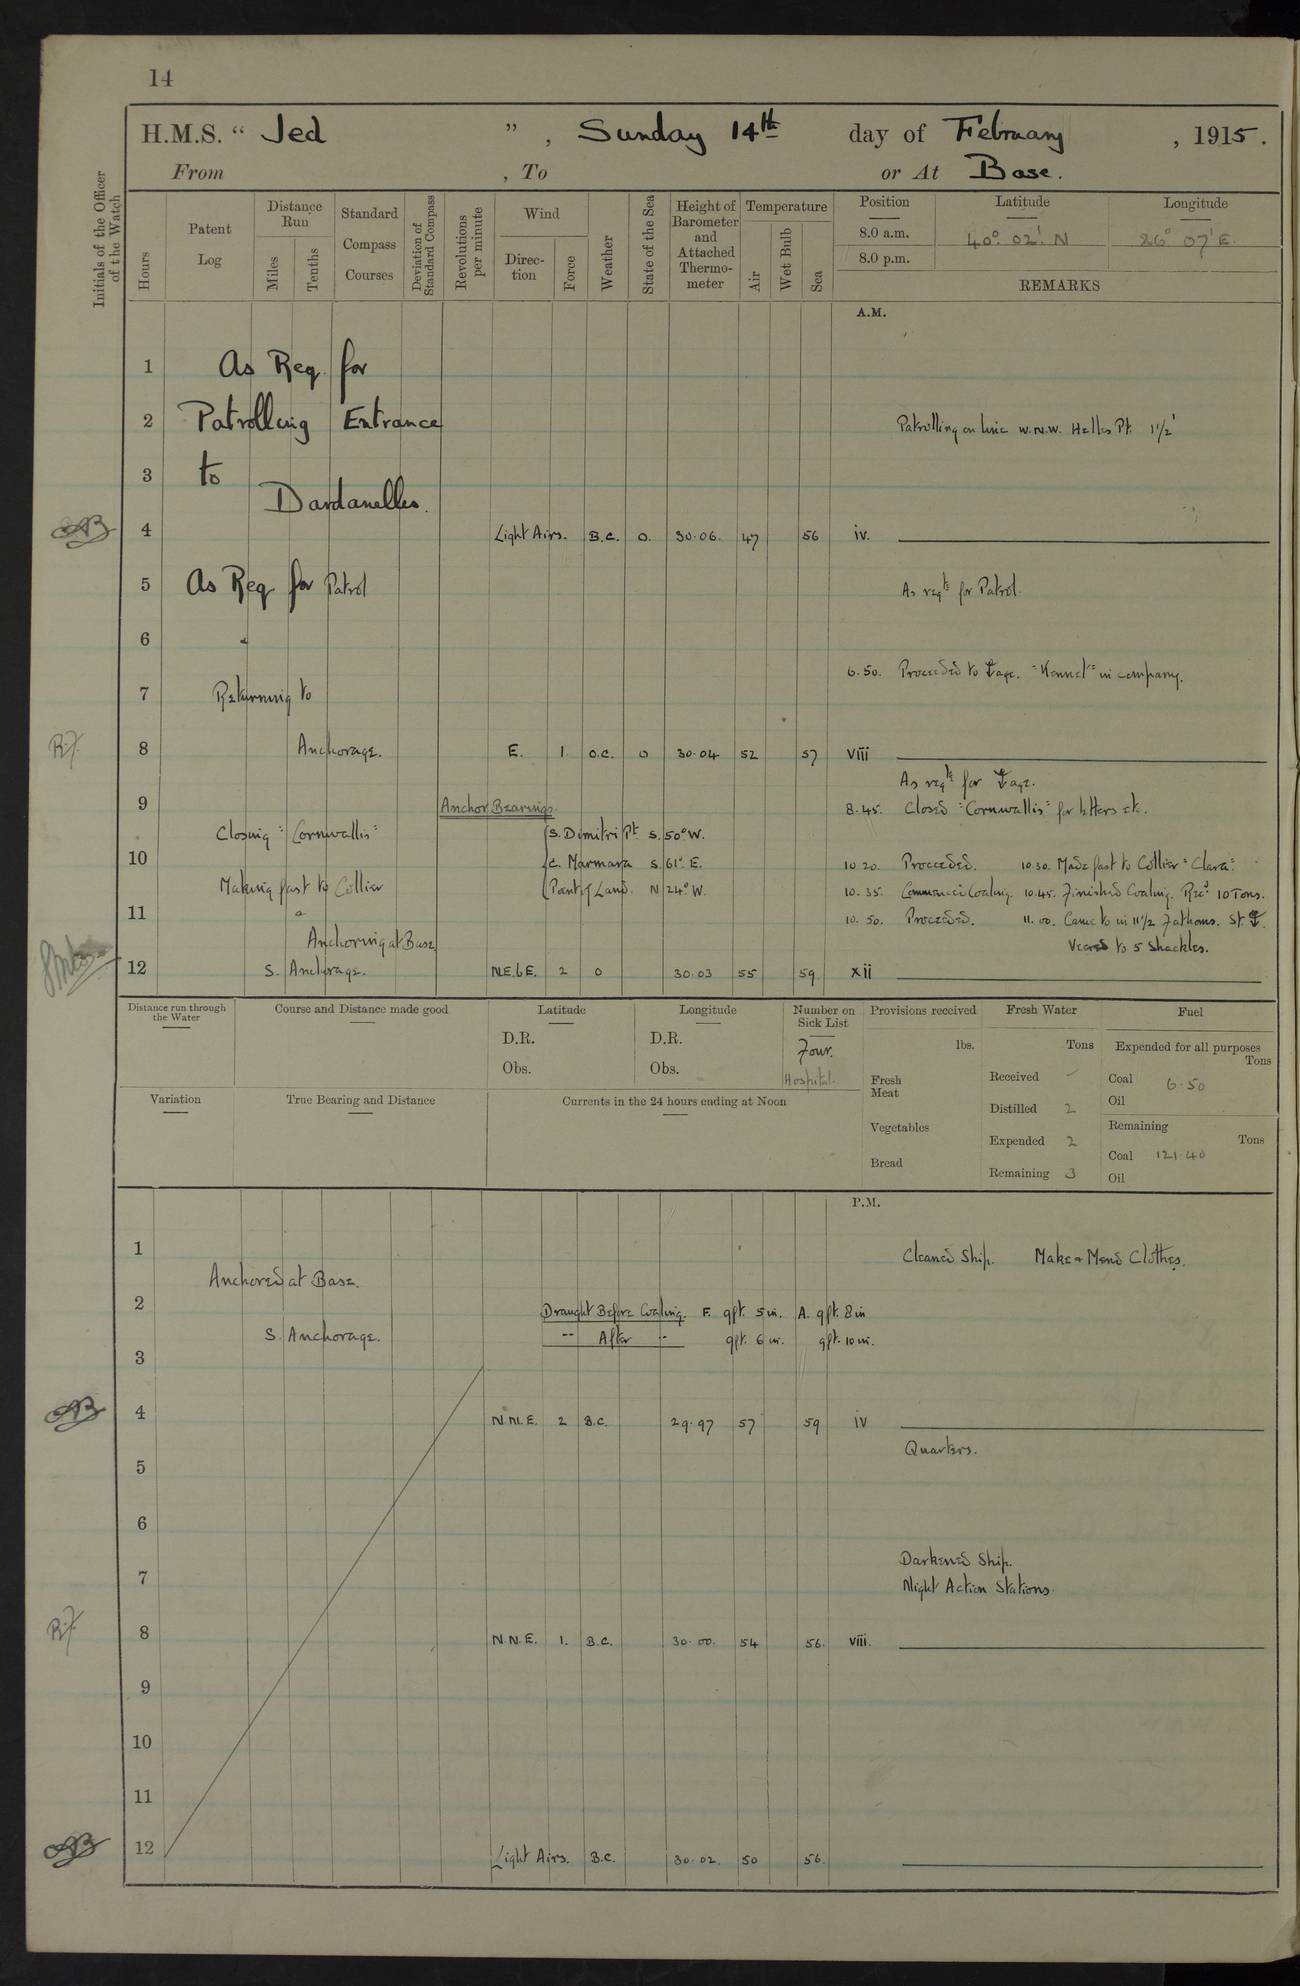 14
H.M.S. “ Jed ” , Sunday 14th day of February , 1915 .
From , To or At Base.
Initials of the Officer of the Watch
Hours
Patent Log
Distance Run
Miles
Tenths
Standard Compass Courses
Deviation of Standard Compass
Revolutions per minute
Wind
Direction
Force
Weather
State of the Sea
Height of Barometer and Attached Thermometer
Temperature
Air
Wet Bulb
Sea
Position Latitude Longitude
8.0 a.m. 40° 02'. N 26° 07' E.
8.0 p.m.
REMARKS
A.M.
1 As Req for
2 Patrolling Entrance Patrolling on line W.N.W. Helles Pt. 1 1/2'
3 to
Dardanelles.
4 Light Airs. B.C. 0. 30.06. 47 56 iv.
5 As Req for Patrol As reqte for Patrol.
6 "
6.50. Proceeded to ⚓age. "Kennet" in company.
7 Returning to
R.F.
8 Anchorage. E. 1. O.C. 0 30.04 52 57 viii
As reqte for ⚓age.
9 Anchor Bearings. 8.45. Closed "Cornwallis" for letters etc.
Closing "Cornwallis" S. Dimitri Pt S. 50° W.
10 C. Marmara S. 61° E. 10 20. Proceeded. 10.30. Made fast to Collier "Clara".
Making fast to Collier Point of Land. N 24° W. 10. 35. Commenced Coaling. 10.45. Finished Coaling. Recd 10 Tons.
11 " 10. 50. Proceeded. 11. 00. Came to in 11 1/2 Fathoms. St. ⚓.
Anchoring at Base Veered to 5 Shackles.
12 S. Anchorage. N.E.bE. 2 0 30.03 55 59 xii
Distance run through the Water
Course and Distance made good
Latitude
Longitude
Number on Sick List
Provisions received
Fresh Water
Fuel
D.R. D.R. Four. lbs. Tons Expended for all purposes Tons
Obs. Obs. Hospital. Fresh Meat Received – Coal 6.50
Oil
Variation True Bearing and Distance Currents in the 24 hours ending at Noon Distilled 2
Vegetables Remaining Tons
Expended 2
Bread Coal 121.40
Remaining 3 Oil
P.M.
1 Cleaned Ship. Make & Mend Clothes.
Anchored at Base.
2 Draught Before Coaling. F. 9ft. 5 in. A. 9ft. 8 in
S. Anchorage. -- After -- 9ft. 6 in. 9ft. 10 in.
3
4 N.N.E. 2 B.C. 29.97 57 59 iv
Quarters.
5
6
Darkened Ship.
7 Night Action Stations.
R.F.
8 N.N.E. 1. B.C. 30.00. 54 56. viii.
9
10
11
12 Light Airs. B.C. 30.02. 50 56.